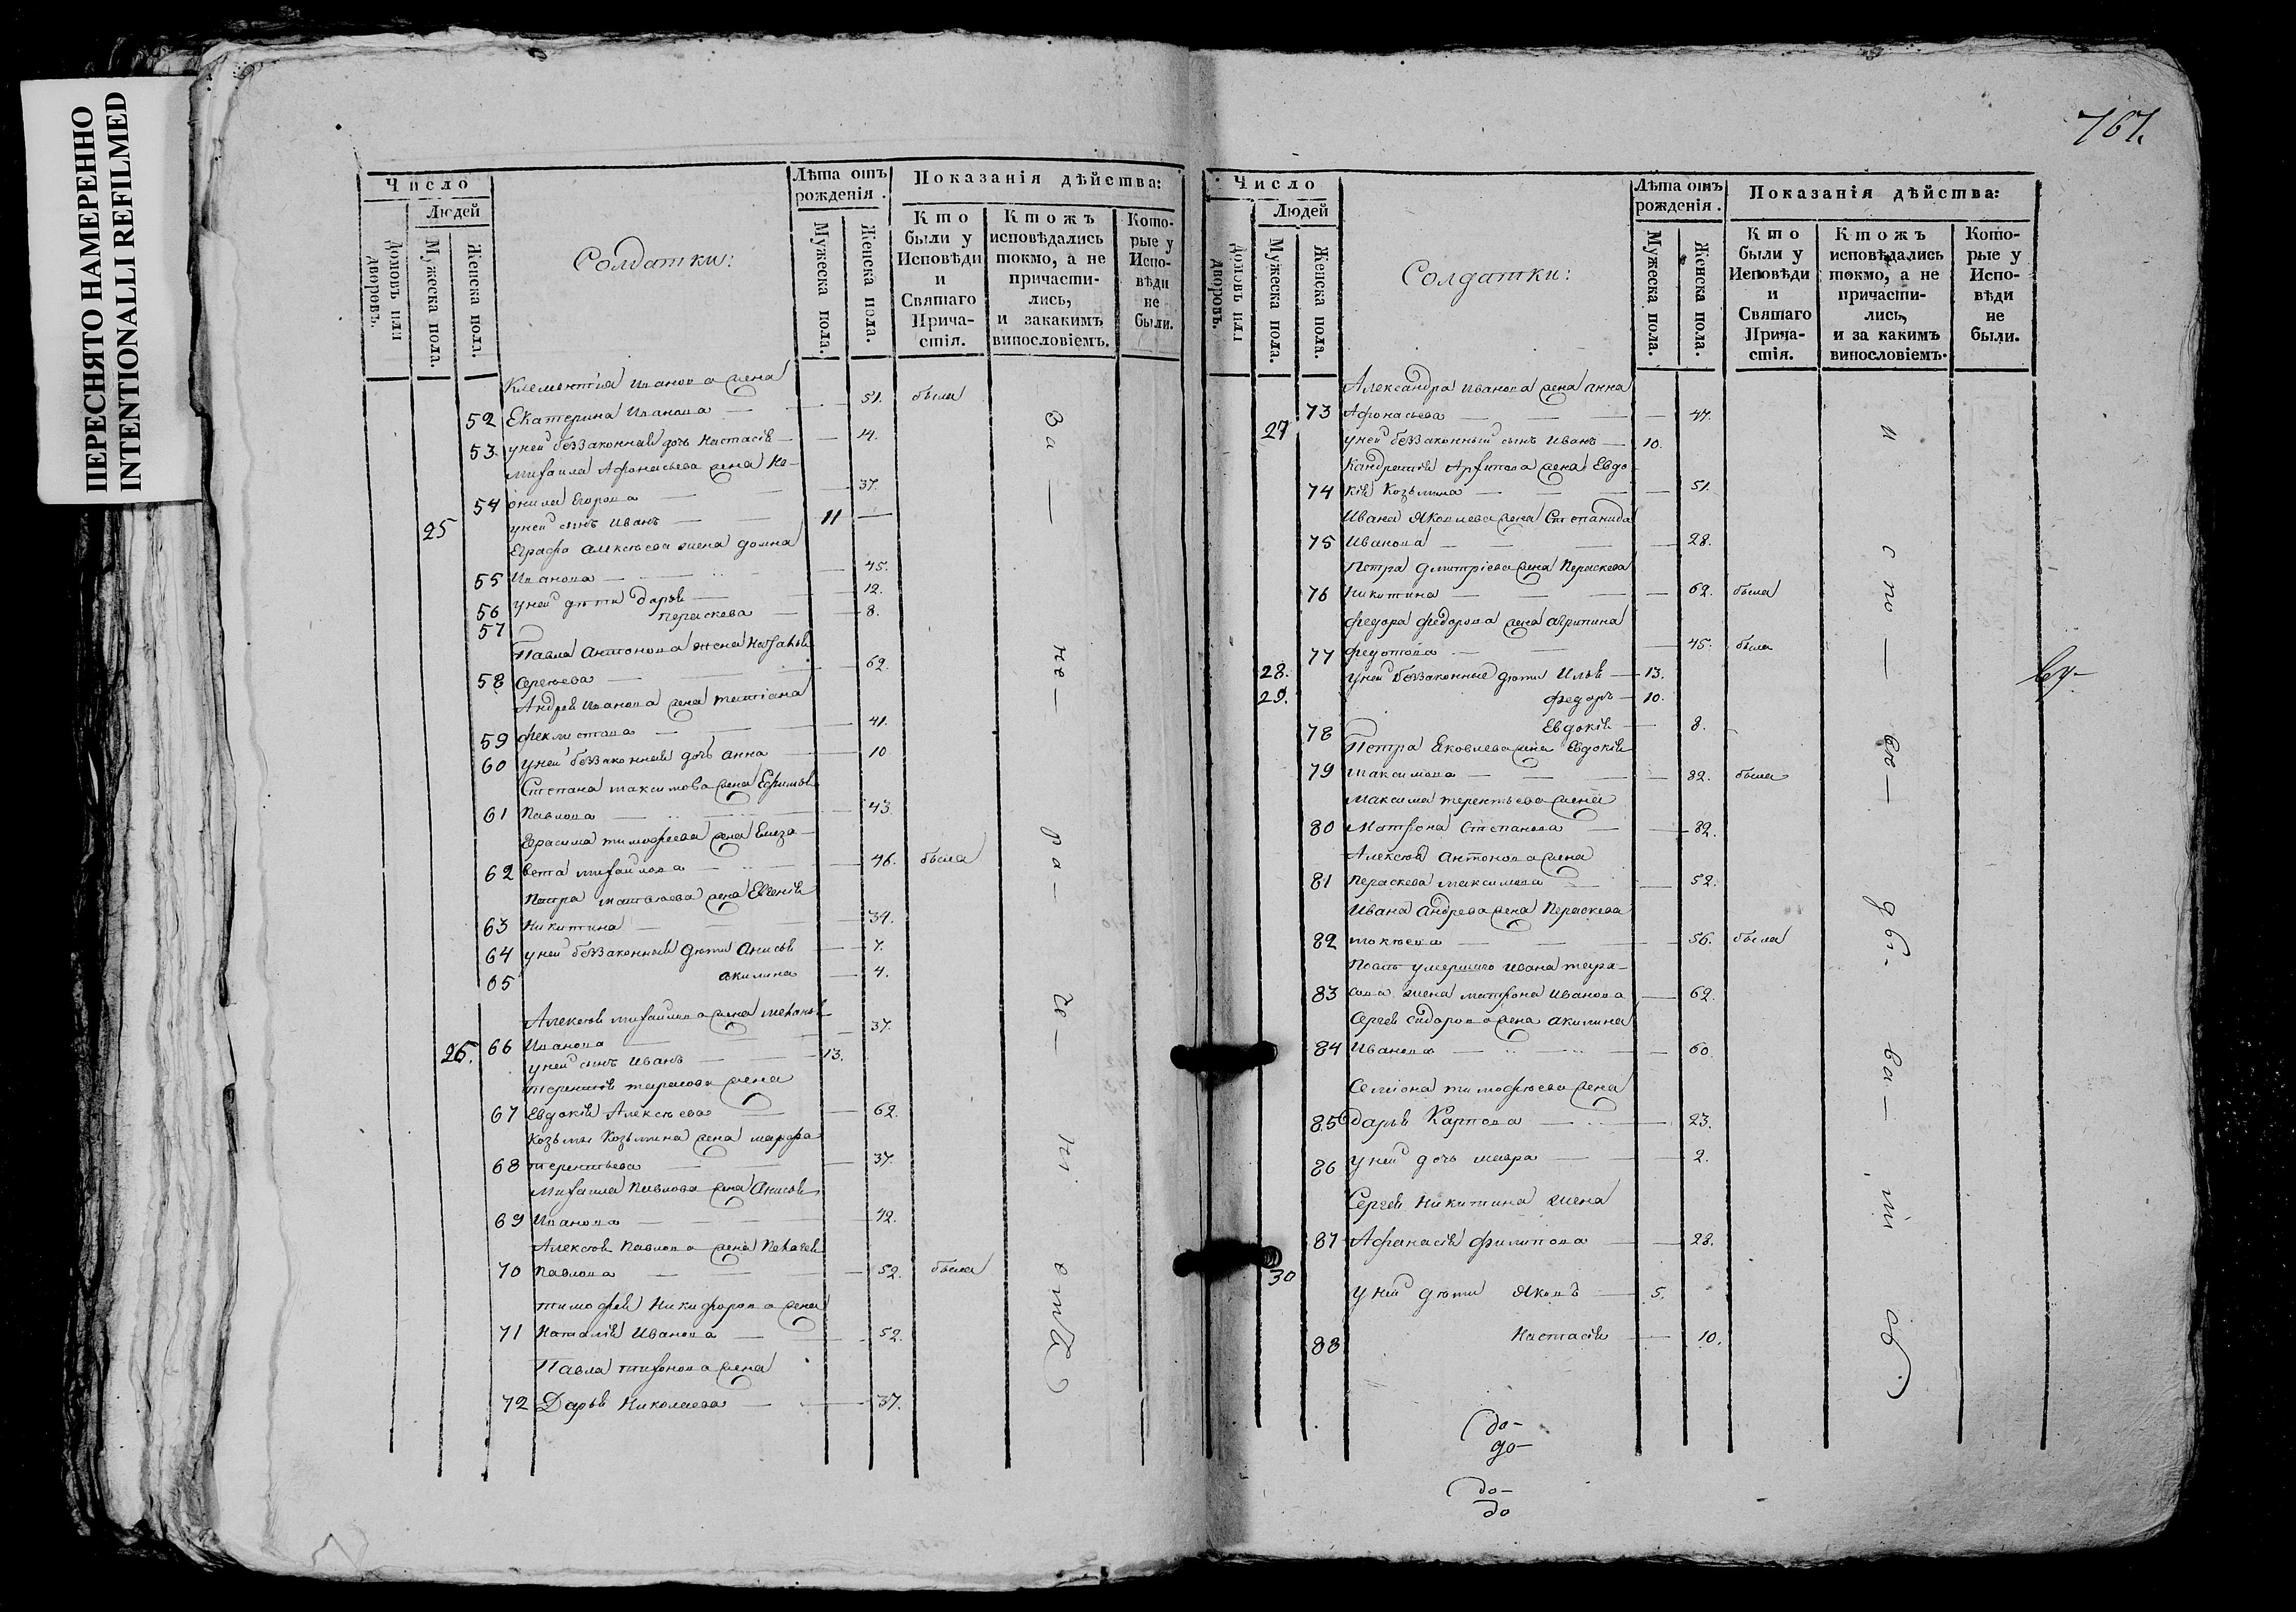 ПЕРЕСНЯТО НАМЕРЕННО
INTENTIONALLI REFILMED
Число
Людей
домовъ или дворовъ.
Мужеска пола.
Женска пола.
Солдатки:
Лѣта отъ рожденія.
Мужеска пола.
Женска пола.
Показанія дѣйства:
Кто были у Исповѣди и Святаго Прича-стія.
Ктожъ исповѣдались токмо, а не причасти-лись, и закакимъ винословіемъ.
Кото-рые у Испо-вѣди не были.
Климентія Иванова жена
52 Екатерина Иванова — 51. была
53. уней беззаконная дочь Настасія — 14.
Михаила Афонасьева жена Не-
54 онила Егорова — 37.
25 уней сынъ Иванъ — 11
Алексѣева жена Домна
55 Иванова — 45.
56 уней дѣти Дарья — 12.
57 Пераскева — 8.
Павла Антонова жена
58 Сергѣева — 62.
Андрея Иванова жена Татіана
59 Феклистова — 41.
60 уней беззаконная дочь Анна — 10
Степана Максимова жена Ефимья
61 Павлова — 43
Герасима Тимофеева жена Елиза-
62 вета Михайлова — 46. была
Петра Матвѣева жена Евгенія
63 Никитина — 34.
64 уней беззаконныя дѣти Анисья — 7.
65 Акилина — 4.
Алексѣя Михайлова жена Меланья
66 Иванова — 37.
26. уней сынъ Иванъ — 13.
Терентія Тарасова жена
67 Евдокія Алексѣева — 62.
Козьмы Козьмина жена Марфа
68 Терентьева — 37.
Михаила Павлова жена Анисья
69 Иванова — 42.
Алексѣя Павлова жена Пелагея
70 Павлова — 52. была
Тимофея Никифорова жена
71 Наталія Иванова — 52.
Павла Тихонова жена
72 Дарья Николаева — 37.
За — не — ра — че — ні
767.
Число
Людей
домовъ или дворовъ.
Мужеска пола.
Женска пола.
Солдатки:
Лѣта отъ рожденія.
Мужеска пола.
Женска пола.
Показанія дѣйства:
Кто были у Исповѣди и Святаго Прича-стія.
Ктожъ исповѣдались токмо, а не причасти-лись, и за какимъ винословіемъ.
Кото-рые у Испо-вѣди не были.
Александра Иванова жена Анна
73 Афонасьева — 47.
27 уней беззаконный сынъ Иванъ — 10.
Кондратія Архипова жена Евдо-
74 кія Козьмина — 51.
Ивана Яковлева жена Степанида
75 Иванова — 28.
Петра Дмитріева жена Пераскева
76 Никитина — 62. была
Федора Федорова жена Агрипина
77 Федотова — 45. была
28. уней беззаконные дѣти Илья — 13.
29. Федоръ — 10.
78 Евдокія — 8.
Петра Яковлева жена Евдокія
79 Максимова — 32. была
Максима Терентьева жена
80 Матрона Степанова — 32.
Алексѣя Антонова жена
81 Пераскева Максимова — 52.
Ивана Андреева жена Пераскева
82 Мокѣева — 56. была
Послѣ умершаго Ивана Тара-
83 сова жена Матрона Иванова — 62.
Сергѣя Сидорова жена Акилина
84 Иванова — 60.
Семіона Тимофѣева жена
85 Дарья Карпова — 23.
86 уней дочь Мавра — 2.
Сергѣя Никитина жена
87 Афанасія Филипова — 28.
30 уней дѣти Яковъ — 5.
88 Настасія — 10.
и спо — вѣ — ды- ва — ли
ву-